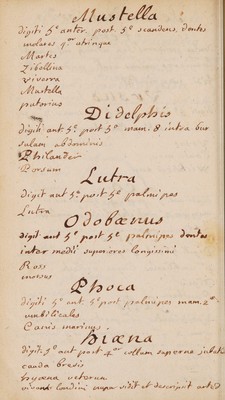 Mustella
digiti 5ᵉ anter. post. 5ᵉ scandens. dentes
molares 4ᵒʳ utrinque
Martes
Zibellina
viverra
Mustella
putorius
Didelphis
digiti ant 5ᵉ post 5ᵉ mam. 8 intra bur
salam abdominis
Philander
Corsum
Lutra
digit ant 5ᵉ post 5ᵉ palmipes
Lutra
Odobænus
digit ant 5ᵉ post 5ᵉ palmipes dentes
inter medii superores longissimi
Ross
Phoca
digiti 5ᵉ ant. 5ᵉ post palmipes mam 2ᵉ
umbilicales
Canis marinus.
hiæna
digit. 5ᵉ ant post 4ᵒʳ collum superne jubat
cauda brevis
hyæna veterum
vivam londini nuper vidit et descripsit